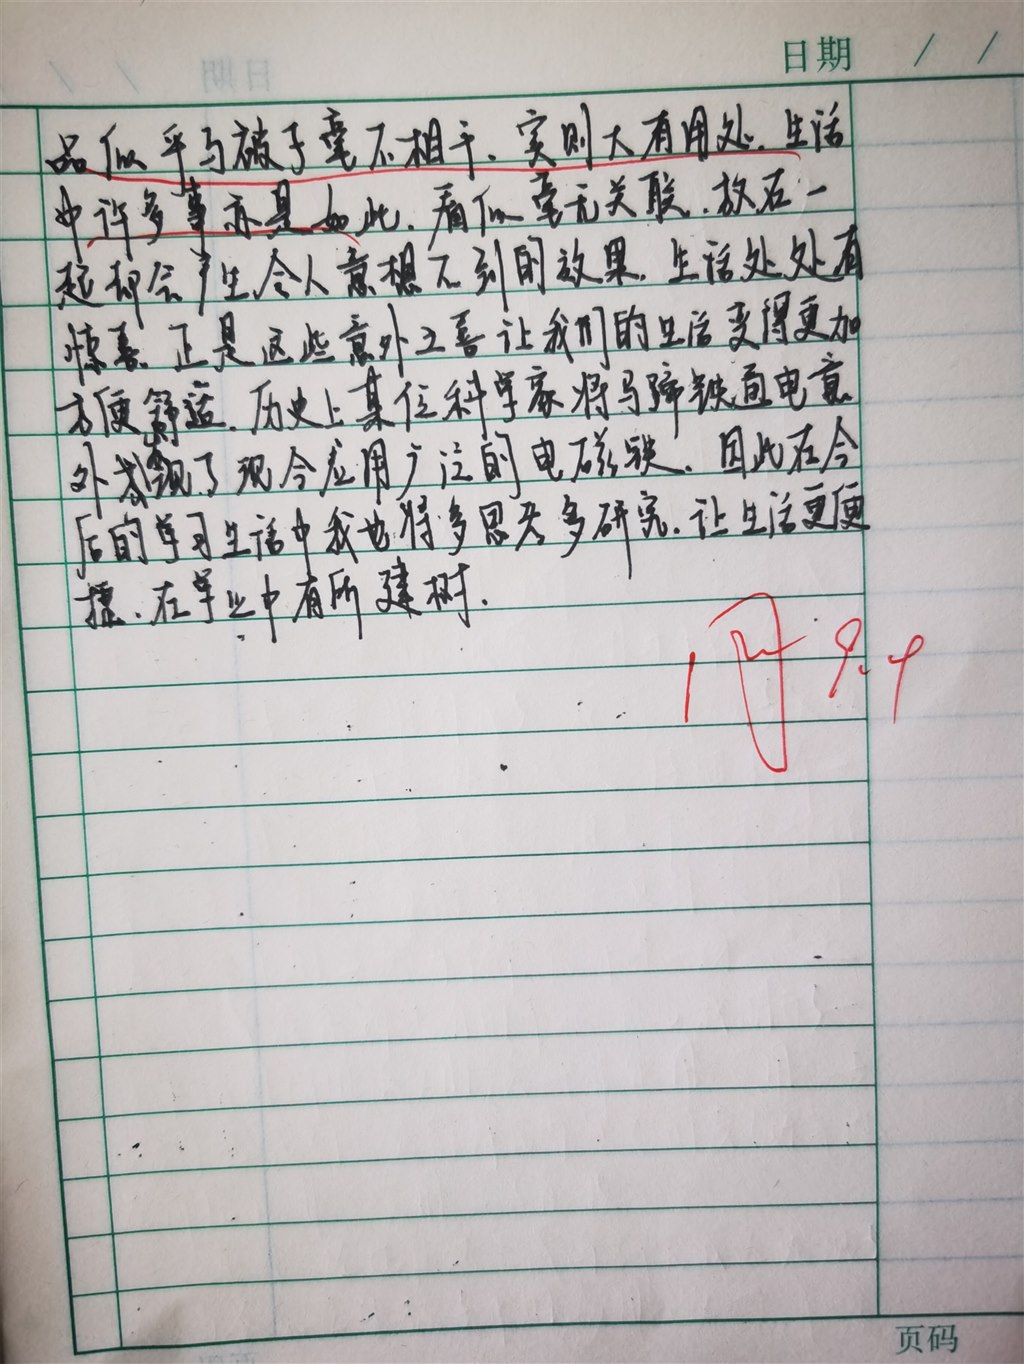 日期 / /
品似乎与被子毫不相干.实则大有用处.生活
中许多事亦是如此.看似毫无关联.放在一
起却会产生令人意想不到的效果.生活处处有
惊喜.正是这些意外之喜让我们的生活变得更加
方便舒适.历史上某位科学家将马蹄铁通电意
外发现了现今应用广泛的电磁铁.因此在今
后的学习生活中我也将多思考多研究.让生活更便
捷.在学业中有所建树.
阅 9.4
页码